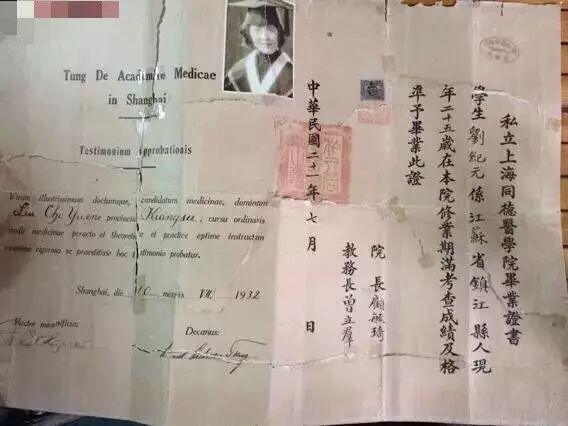 Tung De Academiae Medicae
in Shanghai
Testimonium Approbationis
Virum illustrissimum doctumque, candidatum medicinae, dominum
Liu Chi Yuene provincia Kiangsu, cursu ordinario
studii medicinae peracto et theoretice et practice optime instructum
examine rigoroso se praestitisse hoc testimonio probatur.
Shanghai, die 10 mensis VII. 1932
Rector magnificus:
Decanus:
私立上海同德醫學院畢業證書
學生劉紀元係江蘇省鎮江縣人現
年二十五歲在本院修業期滿考查成績及格
准予畢業此證
院長顧毓琦
教務長曾立羣
中華民國二十一年七月日